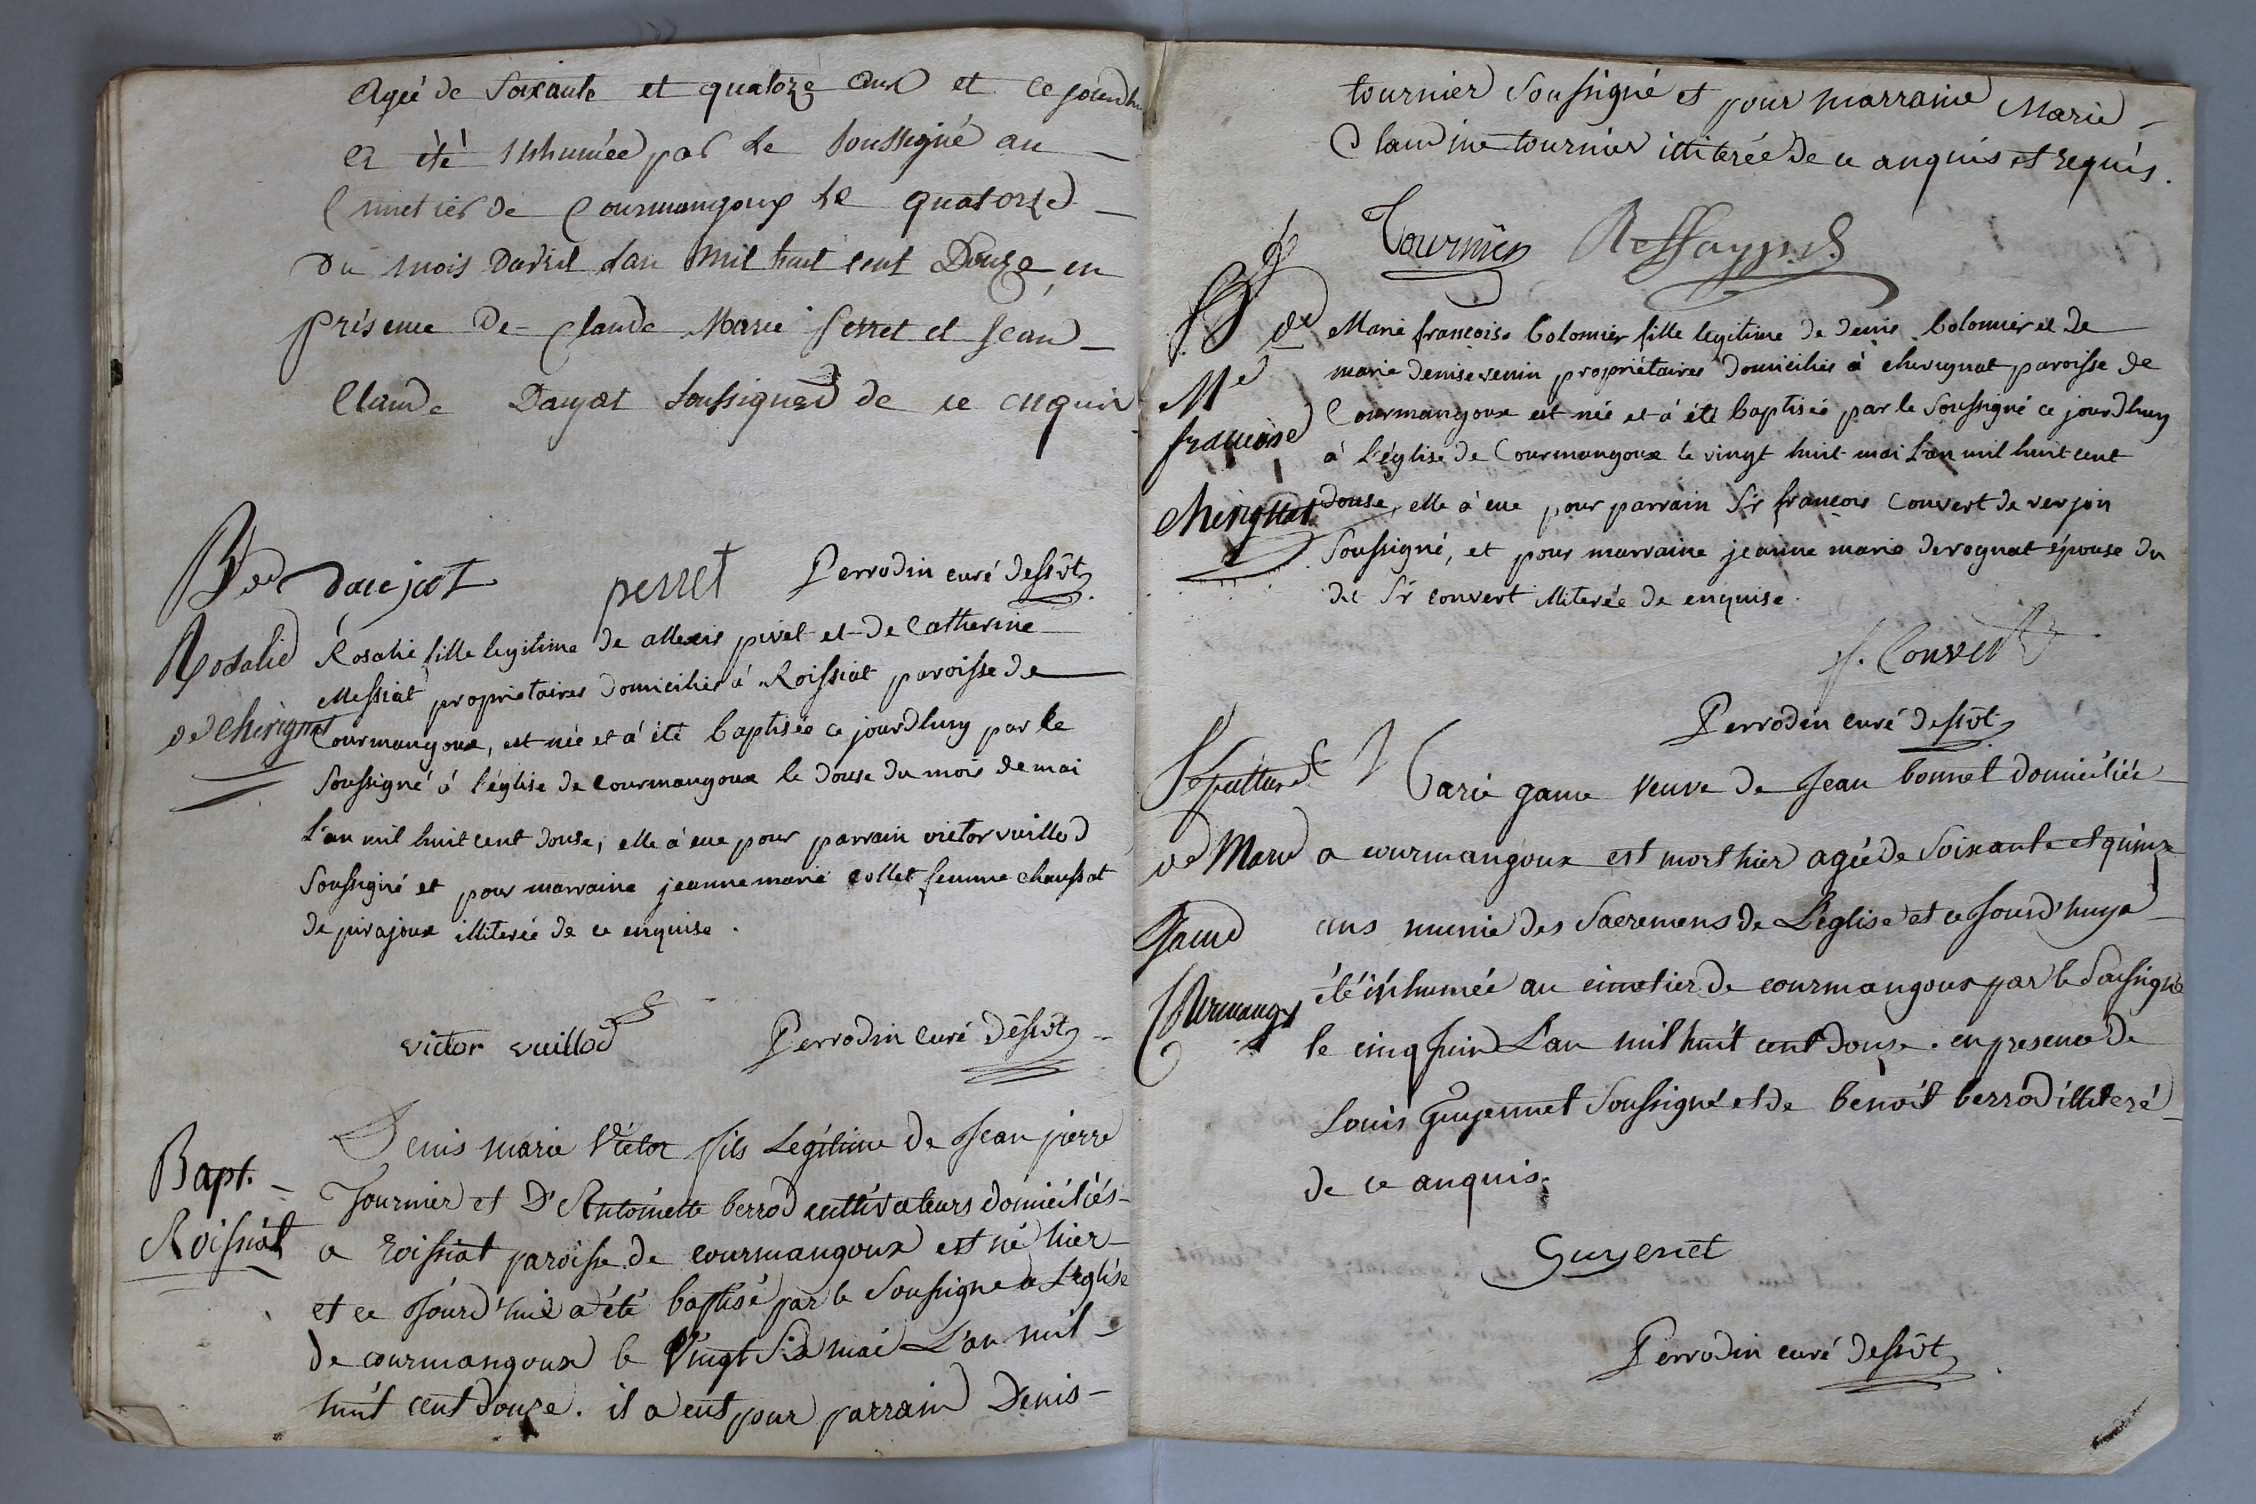 Agée de Soixante et quatorze ans et ce jourdhu
a été inhumée par le soussigné au
Cimetier de Courmangoux le quatorze
du mois Davril L'an mil huit cent Douze en
présence De Claude Marie perret et jean
Claude Daujat soussignés de ce enquis
daujat perret Perrodin curé dessvt
Bme de
Rosalie
de Chevignat
Rosalie fille legitime de allexis pivet et de Catherine
Messiat proprietaires domiciliés à Roissiat paroisse de
Courmangoux, est née et à été baptisée ce jourdhuy par le
soussigné à l'église de courmangoux le douse du mois de mai
L'an mil huit cent douse, elle à eue pour parrain victor vuillod
soussigné et pour marraine jeanne marie collet femme chaussat
de pirajoux illiterée de ce enquise.
victor vuillod Perrodin curé dessvt
Bapt.
Roissiat
Denis marie Victor fils Legitime de Jean pierre
Tournier et D'Antoinette berrod cultivateurs domiciliés
a roissiat paroisse de courmangoux est né hier
et ce Jourd'hui a été baptisé par le soussigné a L'eglise
de courmangoux le Vingt Six mai L'an mil
huit cent douze. il a eut pour parrain Denis
tournier soussigné et pour marraine Marie
Claudine tournier illiterée de ce anquis et requis.
Tournier
B de
Me
francoise
Chevignat
Marie francoise Colomier fille legitime de denis Colomier et de
marie denise venin propriétaires domiciliés à chevignat paroisse de
Courmangoux est née et à été baptisée par le soussigné ce jourdhuy
à l'église de Courmangoux le vingt huit mai L'an mil huit cent
douse, elle à eue pour parrain Sr francois Convert de verjon
soussigné, et pour marraine jeanne marie derognat épouse du
dit Sr convert illiterée de enquise.
f. Convert
Perrodin curé dessvt
Sepulture
de Marie
Game
Courmangx
Marie game veuve de Jean bonnet domiciliée
a courmangoux est mort hier agée de soixante et quinze
ans munie des Sacremens de L'eglise et ce Jourd'huy a
été inhumée au cimetier de courmangoux par le soussigné
le cinq juin L'an mil huit cent douze. en presence de
Louis Guyennet soussigné et de benoit berrod illiteré
de ce anquis.
Guyenet
Perrodin curé dessvt